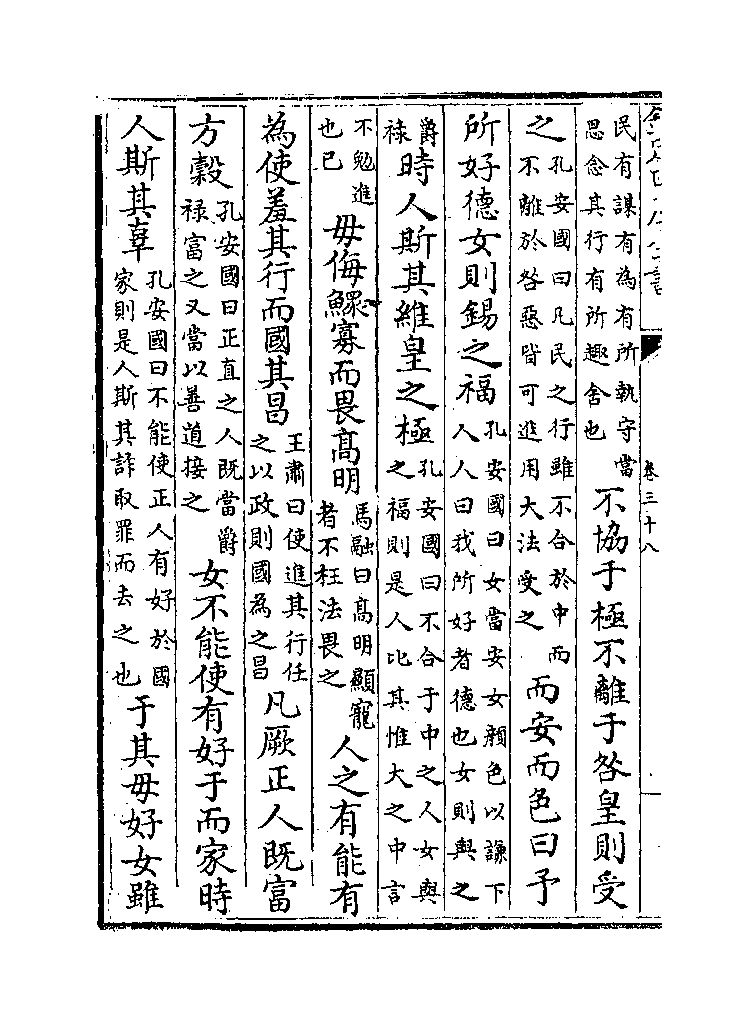 欽定四庫全書 卷三十八
民有謀有為有所執守當思念其行有所趣舍也不協于極不離于咎皇則受
之孔安國曰凡民之行雖不合於中而不離於咎惡皆可進用大法受之而安而色曰予
所好德女則錫之福孔安國曰女當安女顔色以謙下人人曰我所好者德也女則與之
爵祿時人斯其維皇之極孔安國曰不合于中之人女與之福則是人比其惟大之中言
不勉進也已毋侮鰥寡而畏髙明馬融曰髙明顯寵者不枉法畏之人之有能有
為使羞其行而國其昌王肅曰使進其行任之以政則國為之昌凡厥正人既富
方穀孔安國曰正直之人既當爵祿富之又當以善道接之女不能使有好于而家時
人斯其辜孔安國曰不能使正人有好於國家則是人斯其詐取罪而去之也于其毋好女雖